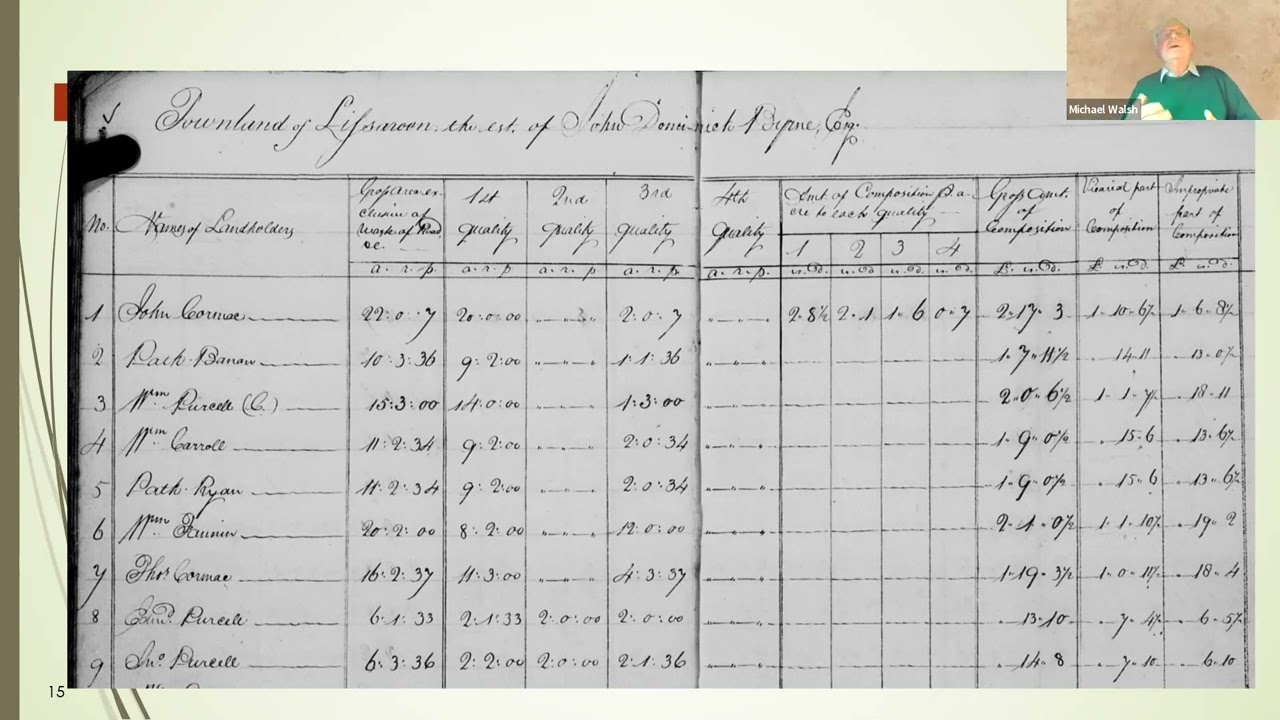 Michael Walsh
Townland of Lissaroon the est. of John Dominick Byrne, Esq.
No. Names of Landholders Gross Area exclusive of Waste of Road &c. 1st quality 2nd quality 3rd quality 4th quality Amt of Composition P. acre to each quality 1 2 3 4 Gross Amt. of Composition Vicarial part of Composition Impropriate part of Composition
a. r. p. a. r. p. a. r. p. a. r. p. a. r. p. s. d. s. d. s. d. s. d. £. s. d. £ s. d. £ s. d.
1 John Cormac 22: 0: 7 20: 0: 00 2: 0: 7 2. 8½ 2. 1 1. 6 0. 7 2. 17. 3 1. 10. 6½ 1. 6. 8½
2 Patk. Banan 10: 3: 36 9: 2: 00 1: 1: 36 1. 7. 11½ 14. 11 13. 0½
3 Wm Purcell (C.) 15: 3: 00 14: 0: 00 1: 3: 00 2. 0. 6½ 1. 1. 7½ 18. 11
4 Wm Carroll 11: 2: 34 9: 2: 00 2: 0: 34 1. 9. 0½ 15. 6 13. 6½
5 Patk. Ryan 11: 2: 34 9: 2: 00 2: 0: 34 1. 9. 0½ 15. 6 13. 6½
6 Wm Fannin 20: 2: 00 8: 2: 00 12: 0: 00 2. 1. 0½ 1. 1. 10½ 19. 2
7 Thos Cormac 16: 2: 37 11: 3: 00 4: 3: 37 1. 19. 3½ 1. 0. 11½ 18. 4
8 Edmd. Purcell 6: 1: 33 2: 1: 33 2: 0: 00 2: 0: 00 13. 10 7. 4½ 6. 5½
9 Jno. Purcell 6: 3: 36 2: 2: 00 2: 0: 00 2: 1: 36 14. 8 7. 10 6. 10
15